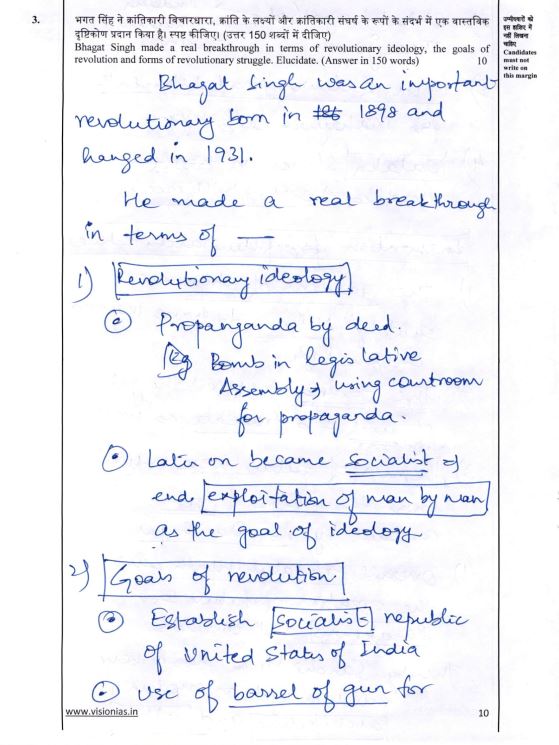 3.
भगत सिंह ने क्रांतिकारी विचारधारा, क्रांति के लक्ष्यों और क्रांतिकारी संघर्ष के रूपों के संदर्भ में एक वास्तविक
दृष्टिकोण प्रदान किया है। स्पष्ट कीजिए। (उत्तर 150 शब्दों में दीजिए)
Bhagat Singh made a real breakthrough in terms of revolutionary ideology, the goals of
revolution and forms of revolutionary struggle. Elucidate. (Answer in 150 words) 10
उम्मीदवारों को
इस हाशिए में
नहीं लिखना
चाहिए
Candidates
must not
write on
this margin
Bhagat Singh was an important
revolutionary born in 1898 and
hanged in 1931.
He made a real breakthrough
in terms of —
1) Revolutionary ideology
Propanganda by deed.
Eg Bomb in legislative
Assembly & using courtroom
for propaganda.
Later on became socialist &
end exploitation of man by man
as the goal of ideology
2) Goals of revolution
Establish socialist republic
of United States of India
Use of barrel of gun for
www.visionias.in
10